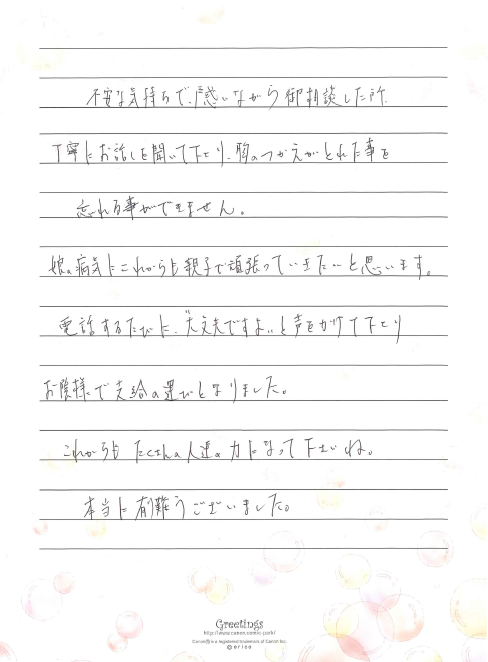 不安な気持ちで、惑いながら御相談した所、
丁寧にお話しを聞いて下さり、胸のつかえがとれた事を
忘れる事ができません。
娘の病気にこれからも親子で頑張っていきたいと思います。
電話するたびに、"大丈夫ですよ"と声をかけて下さり
お陰様で支給の運びとなりました。
これからも たくさんの人達の力になって下さいね。
本当に有難うございました。
Greetings
http://www.canon.comic-park/
Canonⓡ is a registered trademark of Canon Inc.
© erica